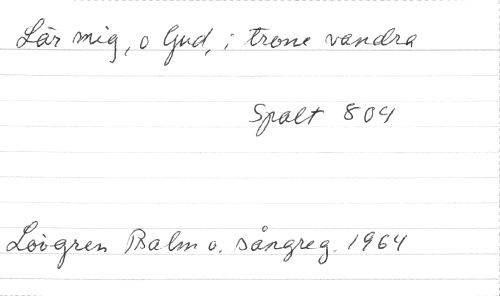 Lär mig, o Gud, i trone vandra
Spalt 804
Lövgren Psalm o. sångreg. 1964